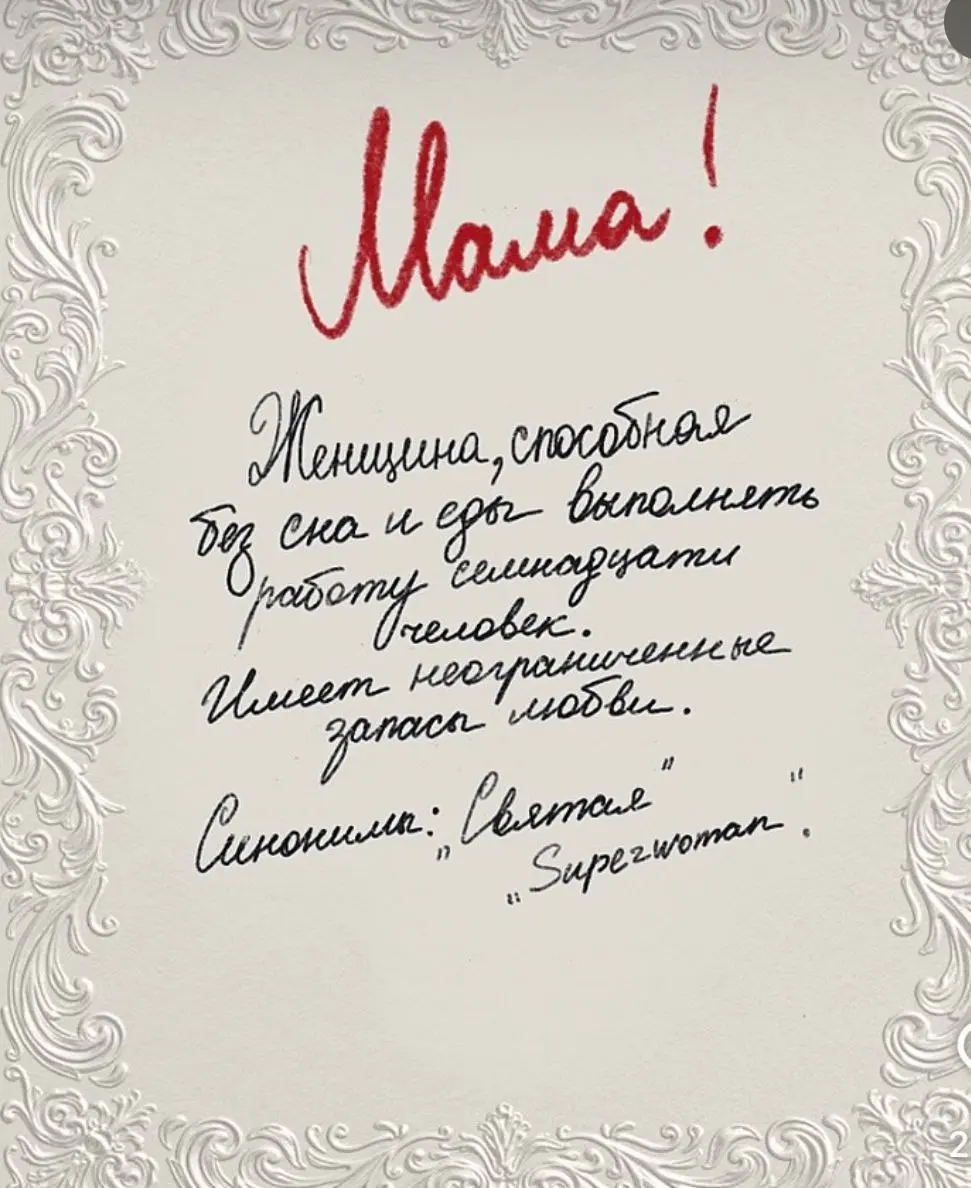 Мама!
Женщина, способная
без сна и еды выполнять
работу семнадцати
человек.
Имеет неограниченные
запасы любви.
Синонимы: „Святая"
„Superwoman".
2